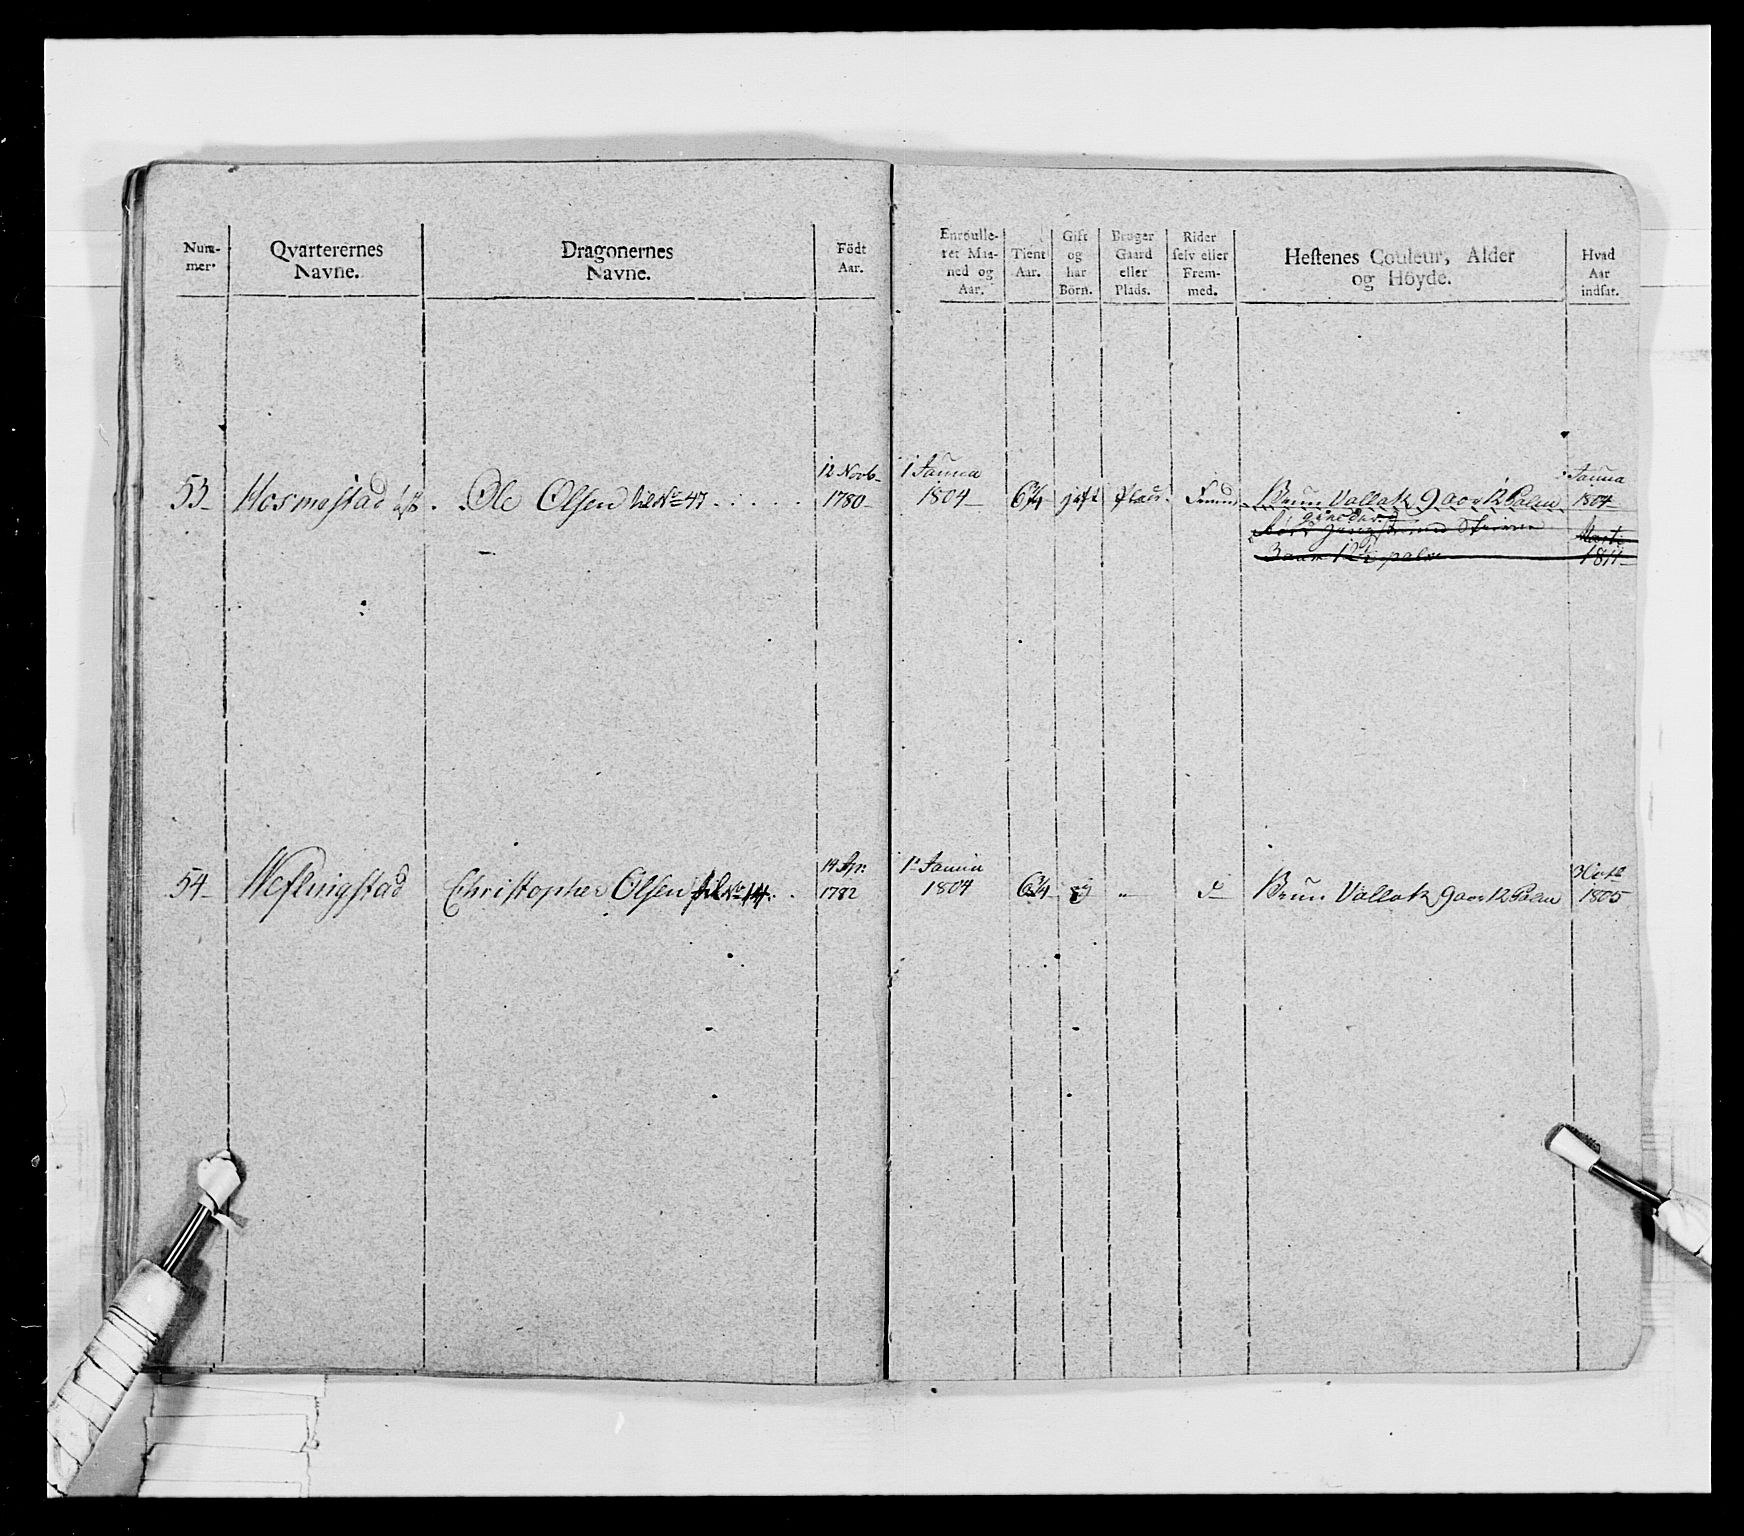 Num-
mer.
Qvarterernes
Navne.
Dragonernes
Navne.
Födt
Aar.
Enroulle-
ret Maa-
ned og
Aar.
Tient
Aar.
Gift
og
har
Börn.
Bruger
Gaard
eller
Plads.
Rider
selv eller
Frem-
med.
Hestenes Couleur, Alder
og Höyde.
Hvad
Aar
indsat.
53 Hosmestad Ole Olsen til No 47
12 Novb 1780
1 Janua 1804
6¾ gift
Brun Vallak 9 aar 12 Palm
Janua 1804
3 aar 12½ palm
1811
54 Neflingstad Christopher Olsen
14 Apr: 1782
1 Janua 1804
6¾
Brun Vallak 9 aar 12 Palm
1805